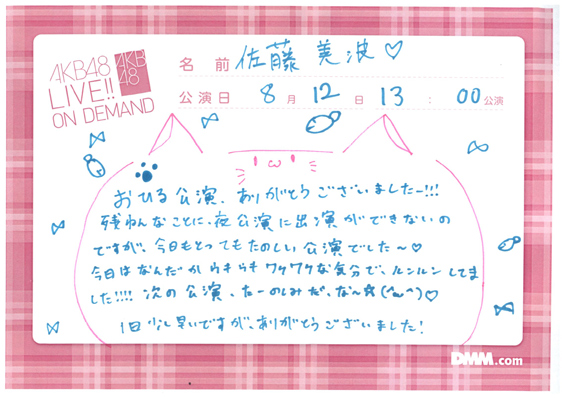 AKB48
LIVE!!
ON DEMAND
AKB
48
名前 佐藤 美波♡
公演日 8月 12日 13:00公演
おひる公演、ありがとうございましたー!!!
残ねんなことに、夜公演に出演ができないの
ですが、今日もとってもたのしい公演でした〜♡
今日はなんだか らキらキ ワクワクな気分で、ルンルンしてま
した!!!! 次の公演、たーのしみだ、な〜☆(^ω^)♡
1日少し早いですが、ありがとうございました!
DMM.com